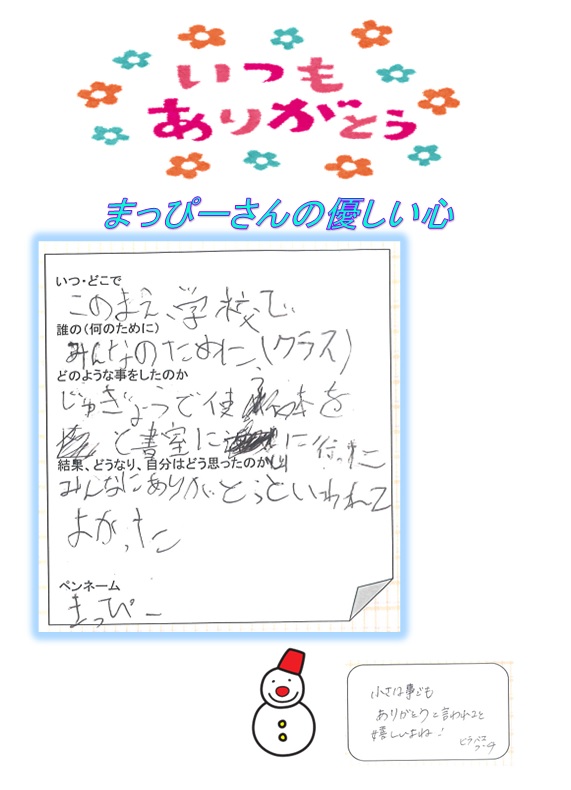 いつも
ありがとう
まっぴーさんの優しい心
いつ・どこで
このまえ、学校で、
誰の（何のために）
みんなのために、（クラス）
どのような事をしたのか
じゅぎょうで使う本を
と書室に に行った
結果、どうなり、自分はどう思ったのか
みんなにありがとうといわれて
よかった
ペンネーム
まっぴー
小さな事でも
ありがとうと言われると
嬉しいよね！